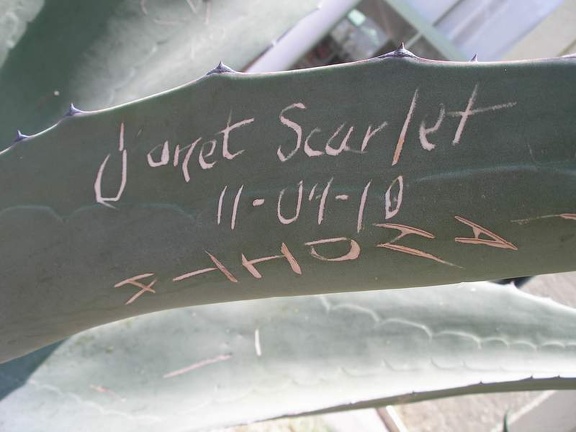 Janet Scarlet
11-04-10